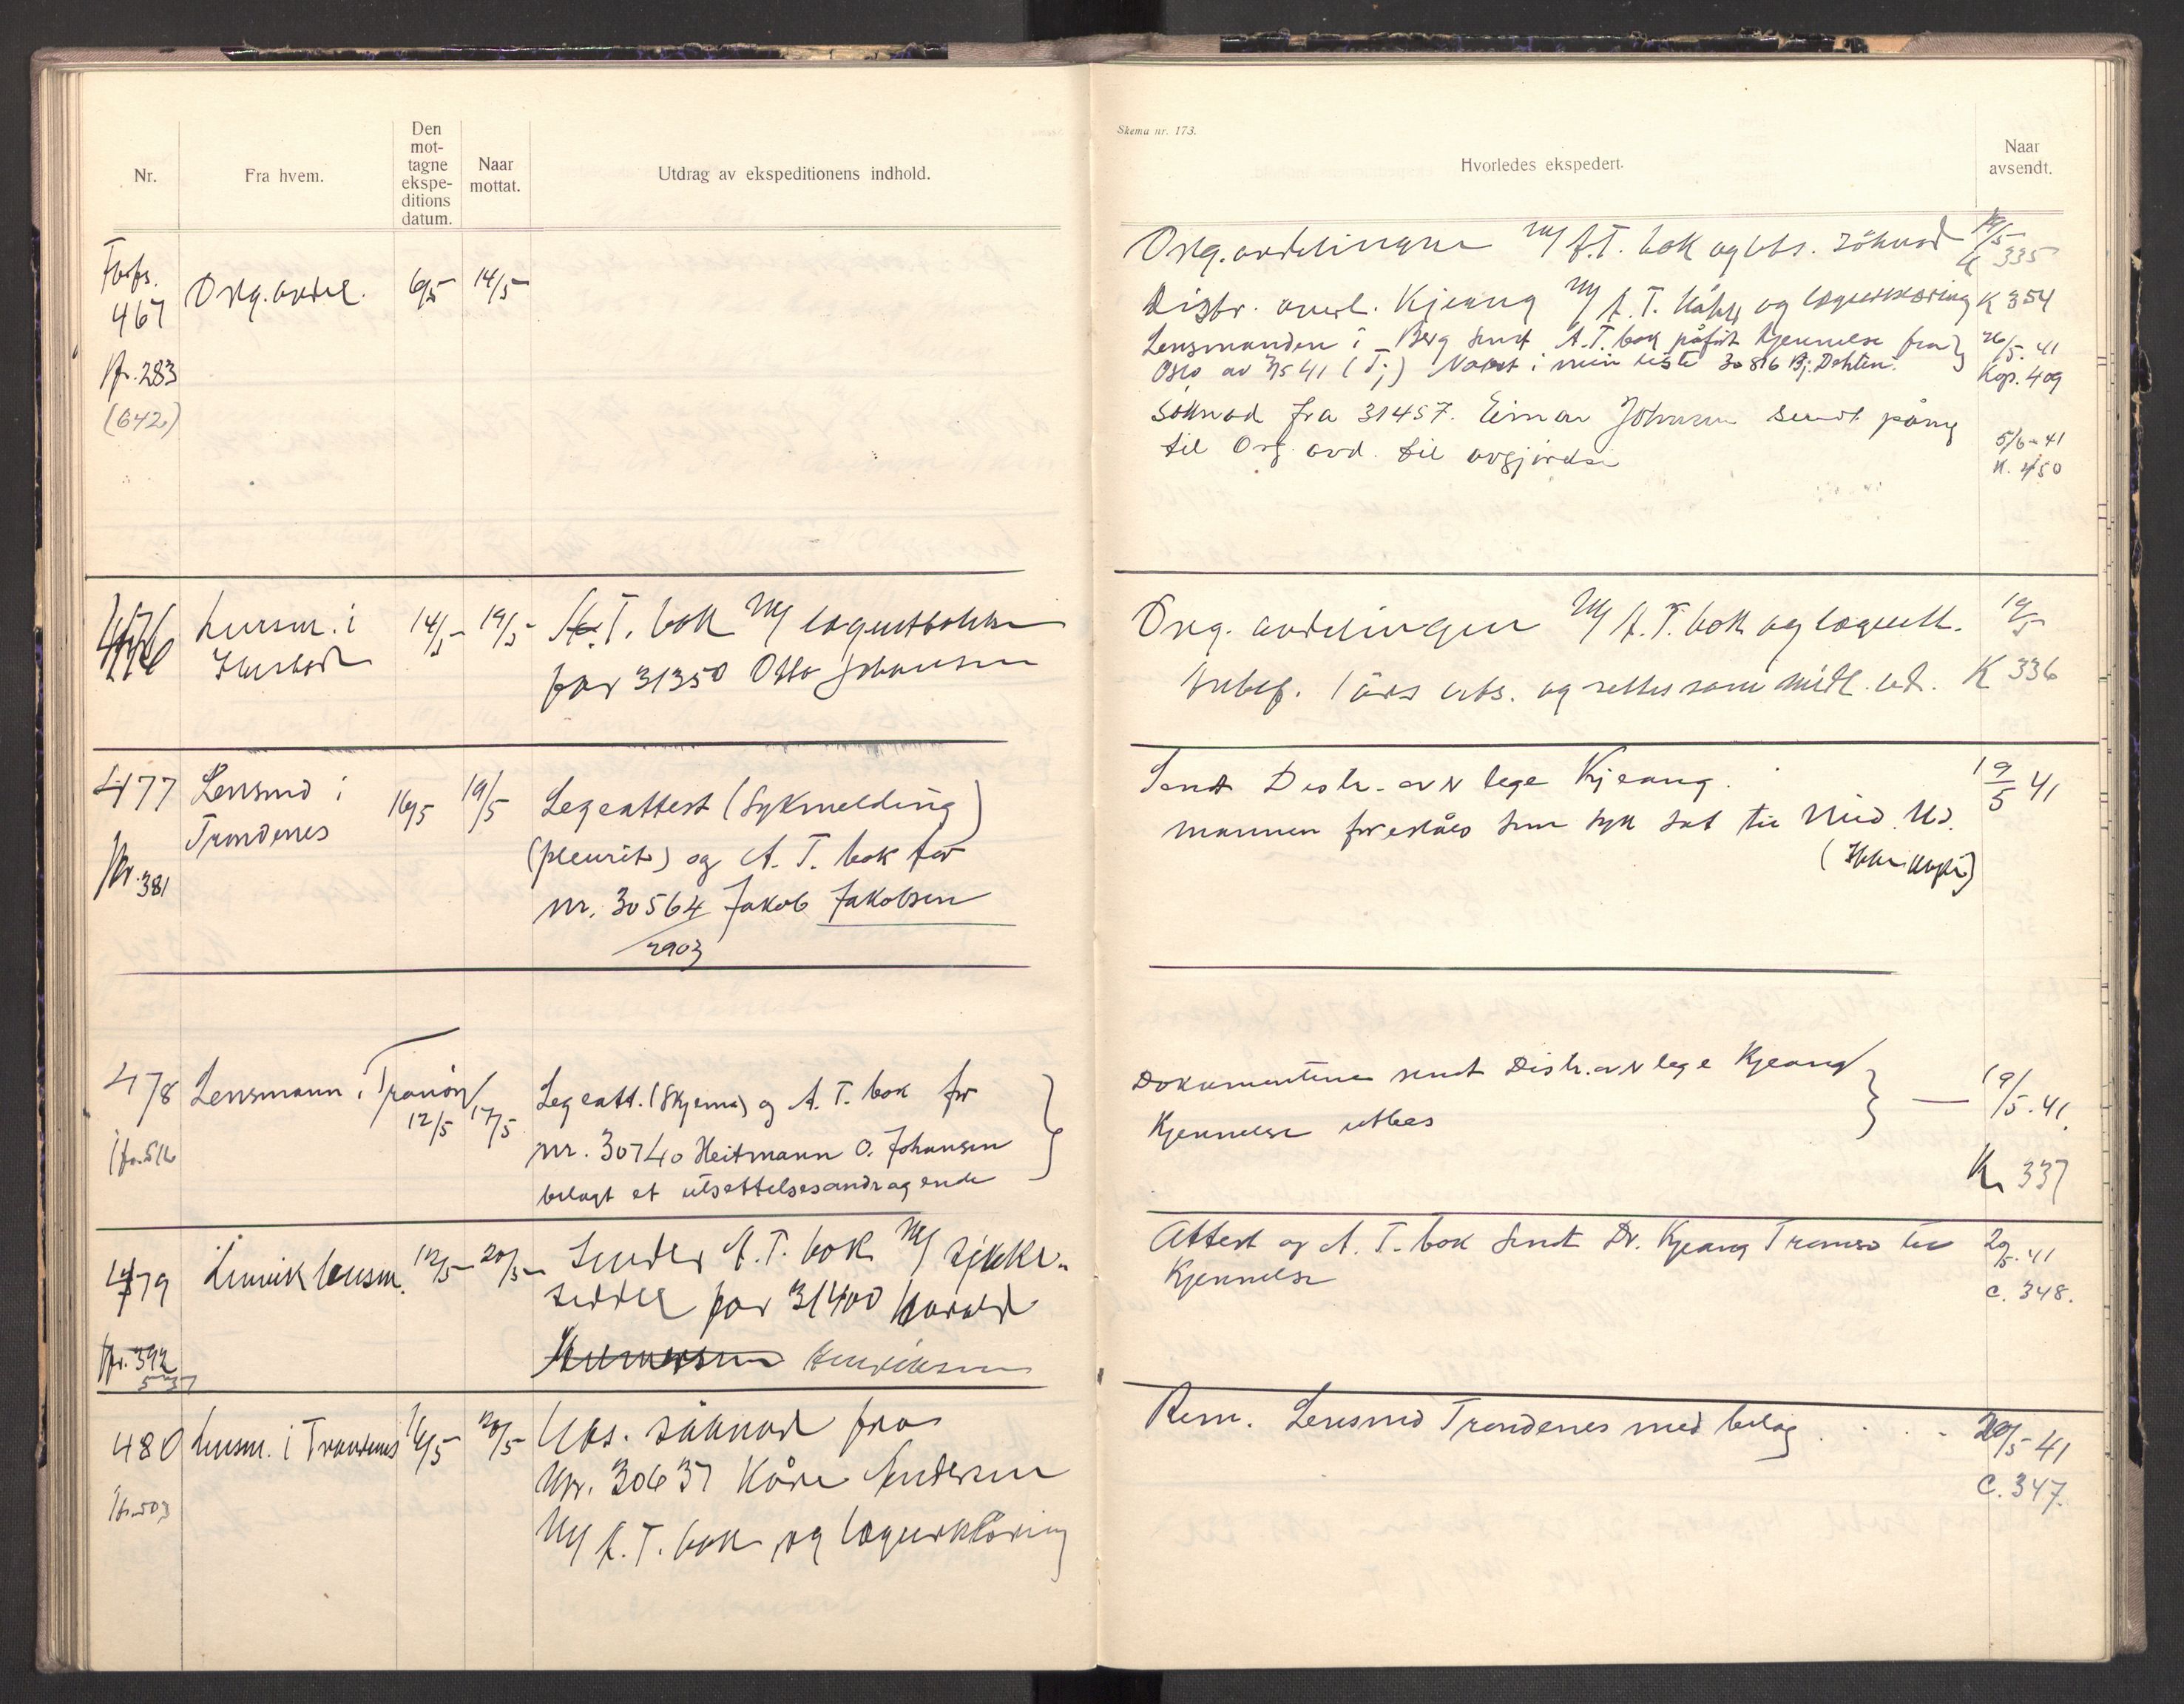 Nr.
Fra hvem.
Den
mot-
tagne
ekspe-
ditions
datum.
Naar
mottat.
Utdrag av ekspeditionens indhold.
Forts.
467
Org. avdel. 6/5 14/5
Jfr. 283
(642)
476
Lensm. i
14/5 19/5 A.T. bok m/
for 31350 Otto Johansen
477
Lensmd i
Trondenes
16/5 19/5
Legeattest (Sykmelding)
(pleurit) og A. T. bok for
nr. 30564 Jakob Jakobsen
2903
Jfr. 381
478 Lensmann i Tranöy
12/5 17/5
Legeatt. (Skjema) og A. T. bok for
nr. 30740 Heitmann O. Johansen
belagt et utsettelsesandragende
Jfr. 516
479 Lenvik lensm. 12/5 20/5 Sender A.T. bok m/
seddel for 31400 Harald
Henriksen
Jfr. 392
537
480 Lensm. i Trondenes 16/5 20/5 Uts. søknad fra
Nr. 30637 Kåre Andersen
m/ A.T. bok og lægeerklæring
Jfr. 503
Skema nr. 173.
Hvorledes ekspedert.
Naar
avsendt.
Org. avdelingen m/ A.T. bok og uts. søknad 19/5
K 335
Distr. overl. Kjeang m/ A.T. og lægeerklæring K 354
Lensmanden i Berg sendt A.T. bok påført kjennelse fra 26/5. 41
Oslo av 7/5 41 (T;) Notert i min liste 30816 Bj. Dahlen. Kop. 409
Søknad fra 31457. Einar Johnsen sendt påny
til Org. avd. til avgjørelse
5/6 - 41
K. 450
Org. avdelingen m/ A.T. bok og 19/5
1 års uts. og settes som midl. ud. K 336
Sendt Distr. av lege Kjeang. 19/5 41
Mannen foreslåes som syk sat til Mid. Ud.
(Ikke kopi)
Dokumentene sendt Distr. av lege Kjeang
Kjennelse utbes
— 19/5. 41.
K. 337
Attest og A. T. bok sendt Dr. Kjeang Tromsø til 20/5. 41
Kjennelse
C. 348.
Rem. Lensmd Trondenes med belag . . . . 20/5 41
C. 347.